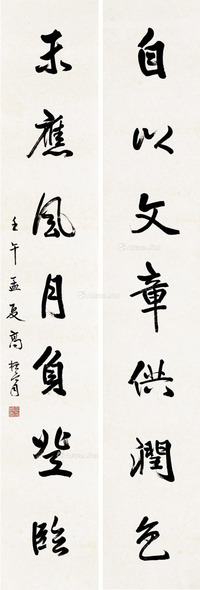 自以文章供潤色
未應風月負登臨
壬午孟夏高振霄